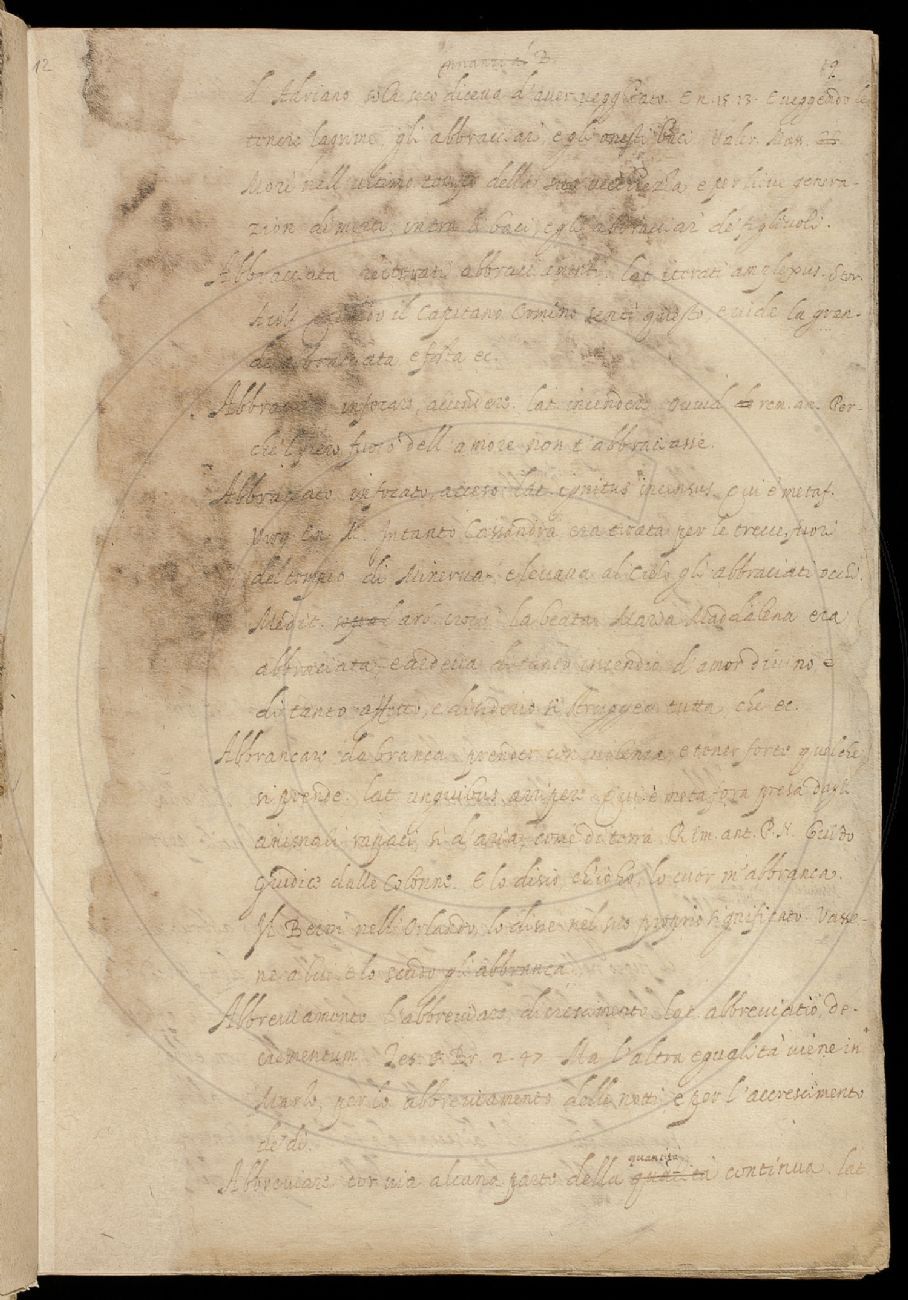 12
innanzi al B.
d'Adriano sole seco diceva d'aver peggiorato. En. 15. 13. E veggendo le
tenere lagrime, gli abbracciari, e gli onesti baci. Valer. Mass.
Morì nell'ultimo tempo della sua vecchiezza, e per lieve genera-
zion di morte, intra li baci, e gli abbracciari de' figliuoli.
Abbracciata iterati abbracciamenti. lat. iterati amplexus. Stor.
il Capitano Comino sentì questo, e vide la gran-
de abbracciata e festa ec.
infocare, accendere. lat. incendere. Ovid. rem. am. Per-
chè 'l fiero fuoco dell'amore non t'abbraciasse.
Abbraciato infocato, acceso. lat. ignitus, incensus. qui è metaf.
Virg. En. M. Intanto Cassandra era tirata per le trecce, fuori
del tempio di Minerva, e levava al Cielo gli abbraciati occhi.
Medit. arb. croc. la beata Maria Maddalena era
abbraciata, e ardeva di tanto incendio d'amor divino e
di tanto affetto, e disiderio si struggea tutta, che ec.
Abbrancare da branca. prender con violenza, e tener forte quel che
si prende. lat. unguibus arripere. Qui è metafora presa dagli
animali rapaci, sì d'aria, come di terra. Rim. ant. P. N. Guido
Giudice dalle Colonne. E lo disio, ch'i' ho, lo cuor m'abbranca.
Il Berni nell'Orlando, lo disse nel suo proprio significato. Vasse-
ne a lui, e lo scudo gli abbranca.
Abbreviamento L'abbreviare, dicrescimento. lat. abbreviatio, de-
crementum. Tes. Br. 2. 47. Ma l'altra egualità viene in
Marzo, per lo abbreviamento delle notti, e per l'accrescimento
de' dì.
quantità
Abbreviare tor via alcuna parte della continua. lat